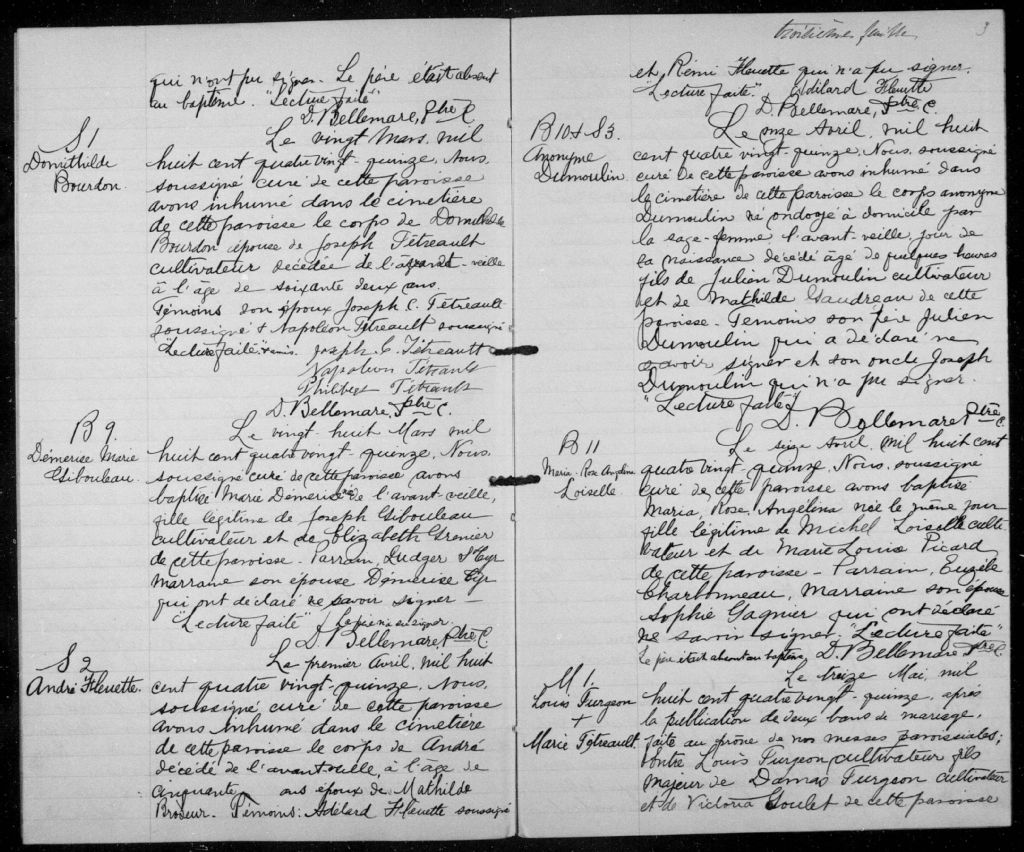 qui n'ont pu signer. Le père était absent
au baptême. "Lecture faite"
D. Bellemare, Ptre C.
S 1
Domithilde
Bourdon.
Le vingt Mars, mil
huit cent quatre vingt-quinze, Nous,
soussigné curé de cette paroisse
avons inhumé dans le cimetière
de cette paroisse le corps de Domithilde
Bourdon épouse de Joseph Tétreault
cultivateur décédée de l'avant-veille
à l'âge de soixante deux ans.
Témoins son époux Joseph C. Tétreault
soussigné & Napoléon Tétreault soussigné
"Lecture faite" Joseph C. Tétreault
Napoléon Tétrault
Philibert Tétrault
D. Bellemare, Ptre C.
B 9.
Démerise Marie
Gibouleau.
Le vingt-huit Mars mil
huit cent quatre vingt-quinze, Nous,
soussigné curé de cette paroisse avons
baptisé Marie Démerise née de l'avant veille,
fille légitime de Joseph Gibouleau
cultivateur et de Elizabeth Grenier
de cette paroisse. Parrain, Ludger St Cyr
Marraine son épouse Démerise Cyr
qui ont déclaré ne savoir signer —
"Lecture faite" Le père n'a su signer.
D. Bellemare, Ptre C.
S 2
André Fleuette.
Le premier Avril, mil huit
cent quatre vingt-quinze, Nous,
soussigné curé de cette paroisse
avons inhumé dans le cimetière
de cette paroisse le corps de André
décédé de l'avant veille, à l'âge de
cinquante ans époux de Mathilde
Brodeur. Témoins: Adélard Fleuette soussigné
troisième feuille 3
et, Rémi Fleuette qui n'a pu signer.
"Lecture faite" Adélard Fleuette
D. Bellemare, Ptre C.
B 10 & S 3.
Anonyme
Dumoulin.
Le onze Avril, mil huit
cent quatre vingt-quinze, Nous, soussigné
curé de cette paroisse avons inhumé dans
le cimetière de cette paroisse le corps anonyme
Dumoulin né ondoyé à domicile par
la sage-femme, l'avant-veille, jour de
sa naissance décédé âgé de quelques heures
fils de Julien Dumoulin cultivateur
et de Mathilde Gaudreau de cette
paroisse. Témoins son père Julien
Dumoulin qui a déclaré ne
savoir signer et son oncle Joseph
Dumoulin qui n'a pu signer.
"Lecture faite"
D. Bellemare Ptre C.
B 11
Maria-Rose Angelina
Loiselle.
Le seize Avril, mil huit cent
quatre vingt-quinze, Nous, soussigné
curé de cette paroisse avons baptisé
Maria, Rose, Angélina née le même jour
fille légitime de Michel Loiselle culti
vateur et de Marie Louise Picard
de cette paroisse — Parrain, Euzèbe
Charbonneau, Marraine son épouse
Sophie Gagnier qui ont déclaré
ne savoir signer. "Lecture faite"
Le père était absent au baptême. D. Bellemare Ptre C.
M 1.
Louis Turgeon
+
Marie Tétreault.
Le treize Mai, mil
huit cent quatre vingt-quinze, après
la publication de deux bans de mariage,
faite au prône de nos messes paroissiales;
entre Louis Turgeon, cultivateur fils
majeur de Damas Turgeon cultivateur
et de Victoria Goulet de cette paroisse